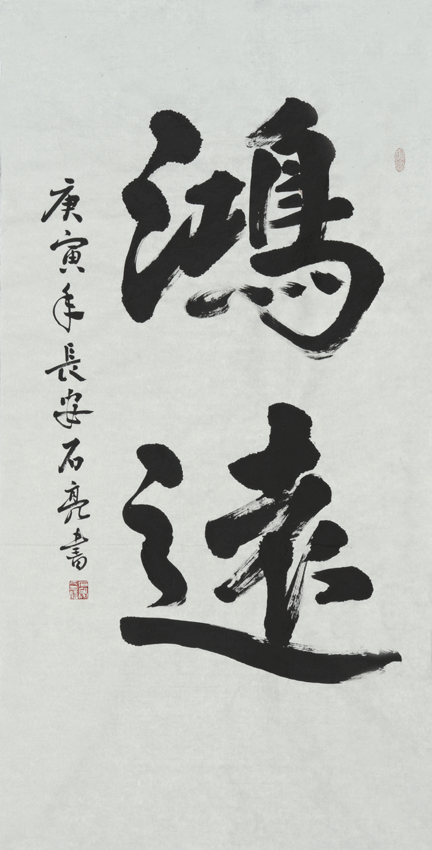 鴻遠
庚寅年長安石亮書